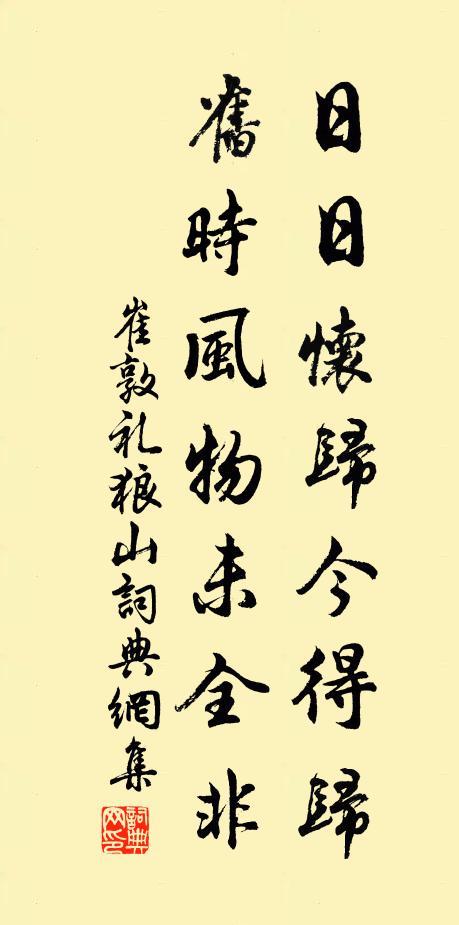 日日懷歸今得歸
舊時風物未全非
崔敦礼狼山詞典網集
詞典網印